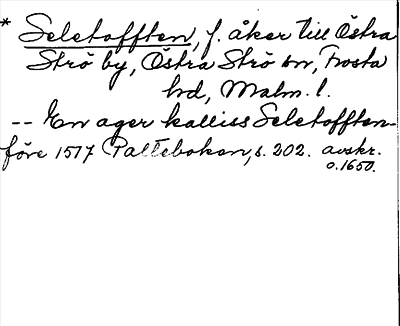 * Seletofften, f. åker till Östra
Strö by, Östra Strö sn, Frosta
hd, Malm. l.
-- En ager kalliss Seletofften-
före 1517 Paltebokan, s. 202. avskr.
o. 1650.